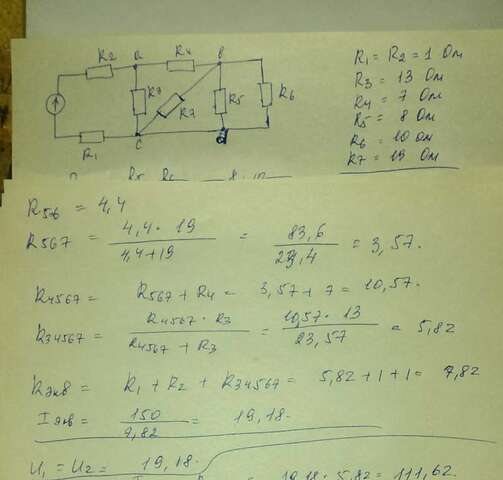 R2 a R4 b
R3 R7 R5 R6
R1 c d
R1 = R2 = 1 Ом
R3 = 13 Ом
R4 = 7 Ом
R5 = 8 Ом
R6 = 10 Ом
R7 = 19 Ом
R5 R6 8 10
R56 = 4,4
R567 = 4,4 · 19 / 4,4 + 19 = 83,6 / 23,4 = 3,57.
R4567 = R567 + R4 = 3,57 + 7 = 10,57.
R34567 = R4567 · R3 / R4567 + R3 = 10,57 · 13 / 23,57 = 5,82
Rэкв = R1 + R2 + R34567 = 5,82 + 1 + 1 = 7,82
Iэкв = 150 / 7,82 = 19,18.
U1 = U2 = 19,18.
19,18 · 5,82 = 111,62.